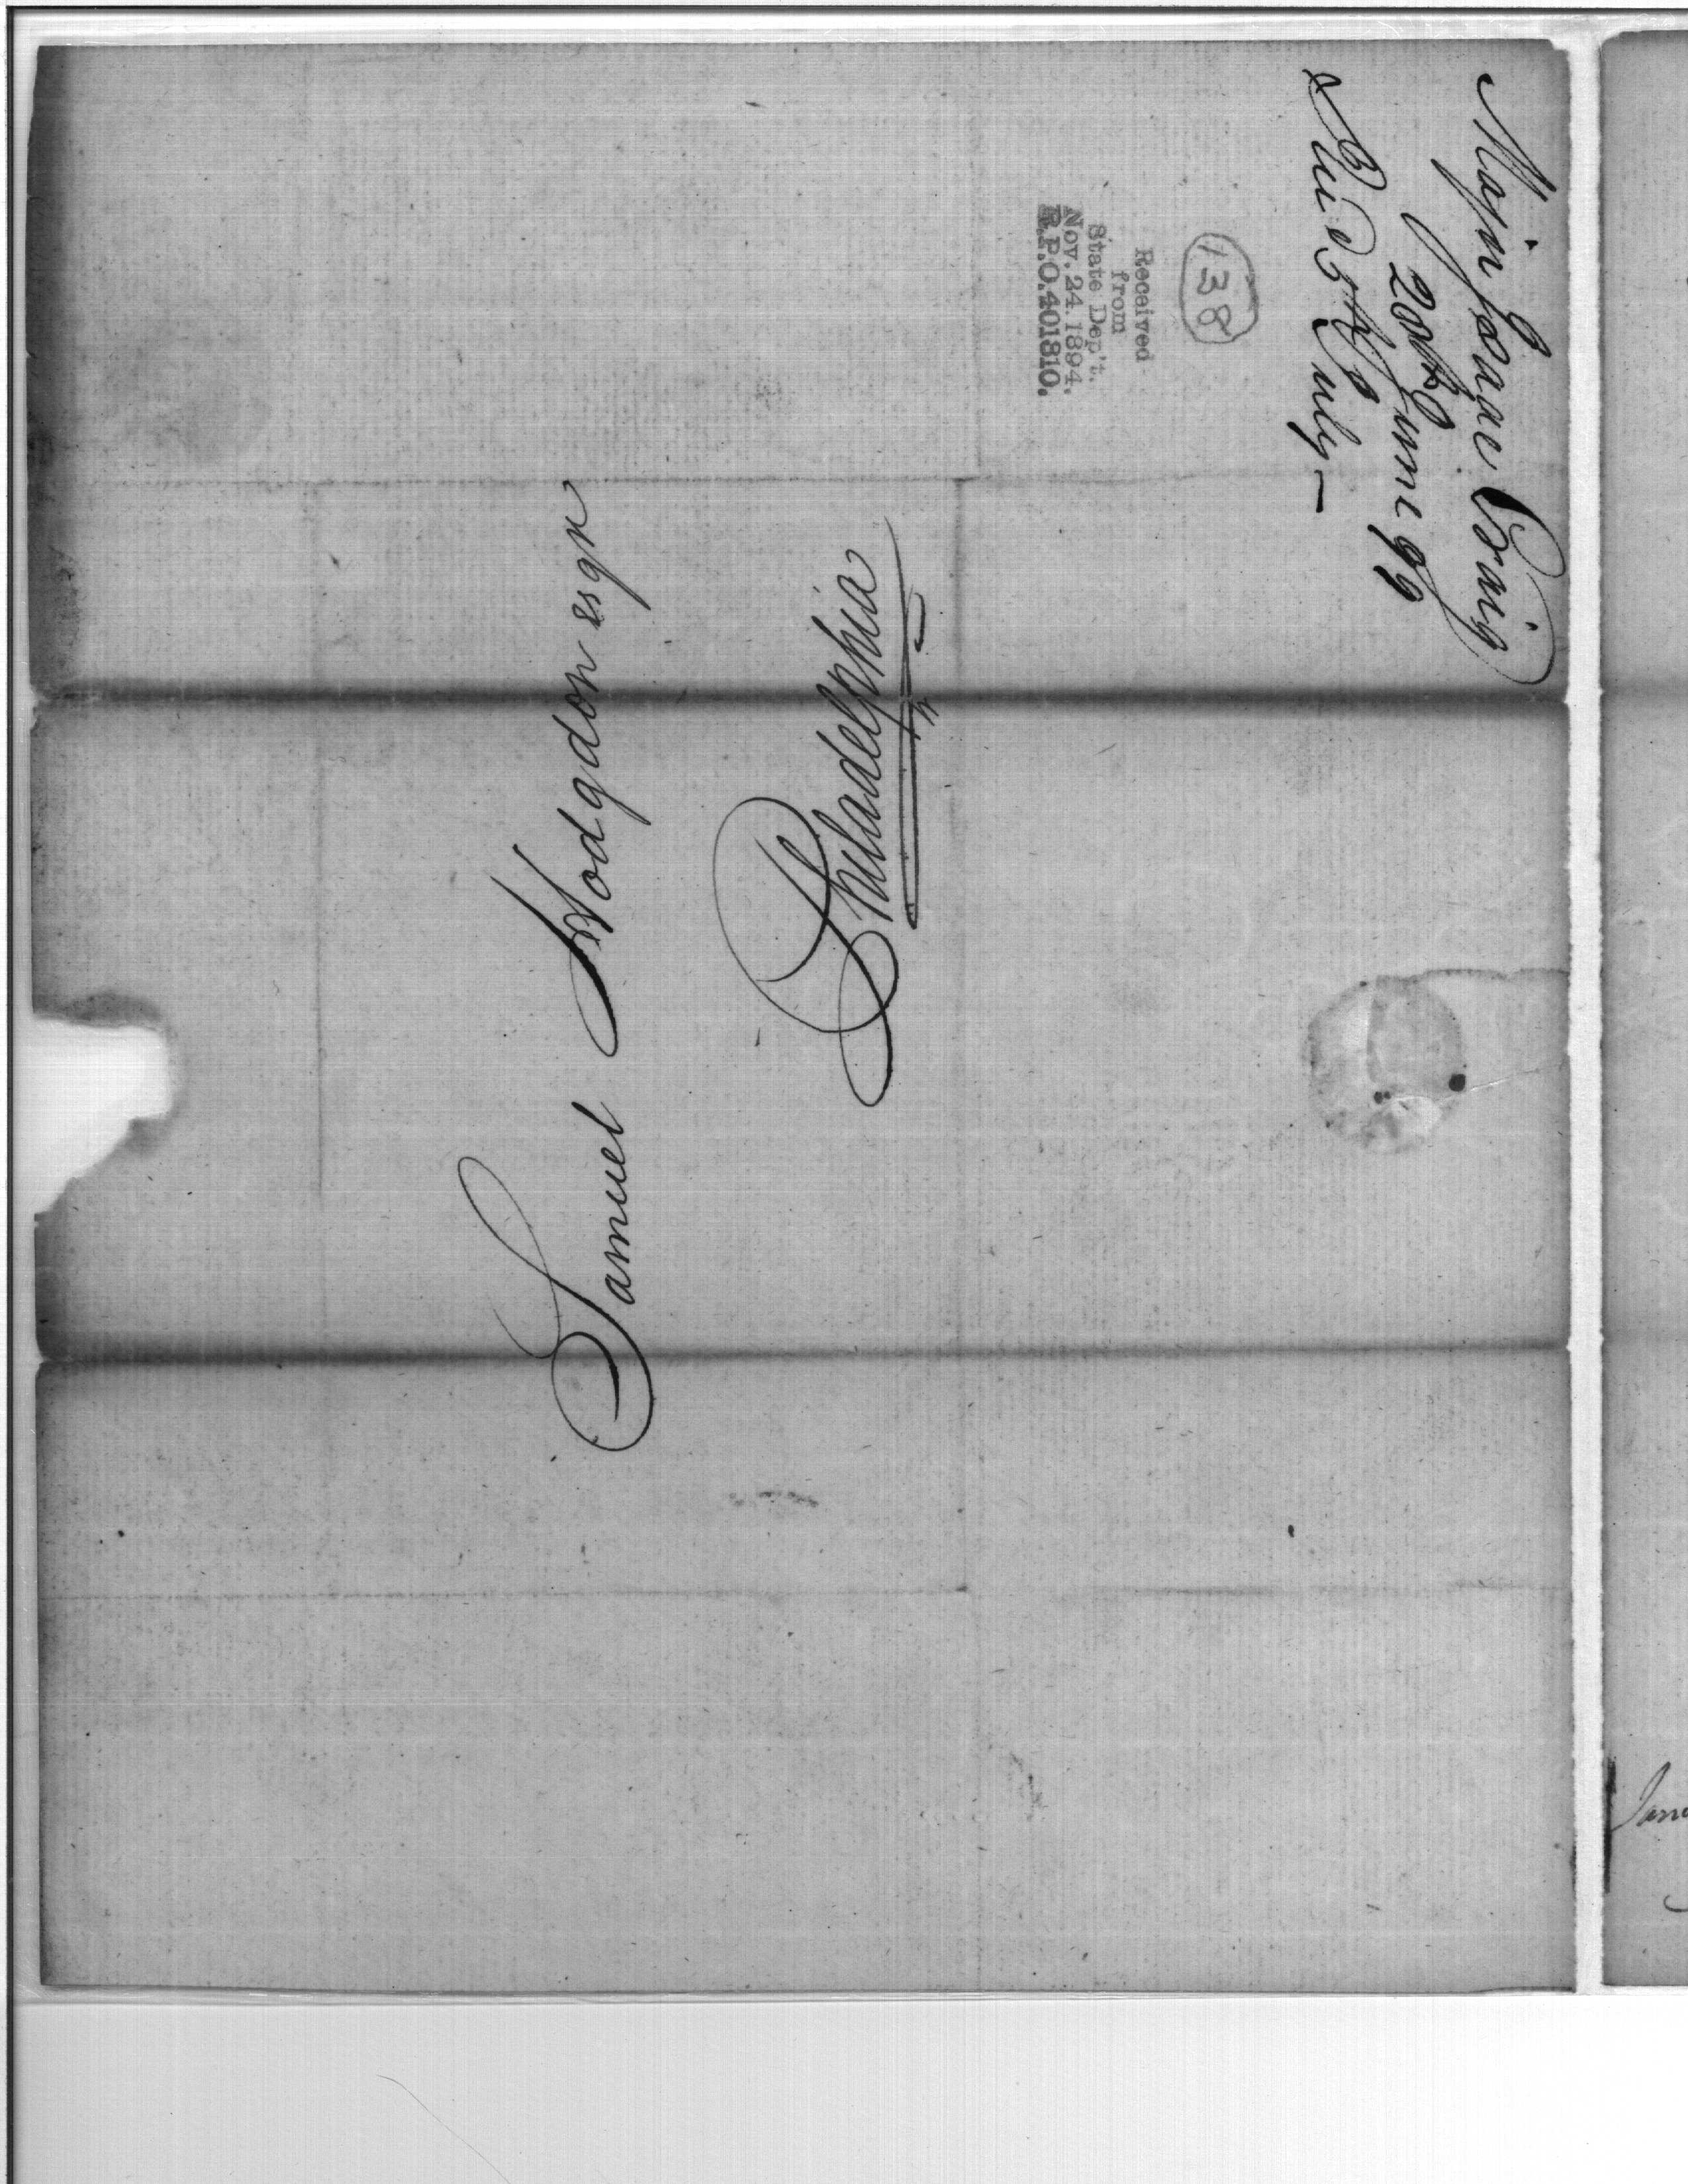 Major Isaac Craig
20th June 99
Rec'd 5th July —
138
Received
from
State Dep't.
Nov. 24. 1894.
R.P.O. 401810.
Samuel Hodgdon esqr
Philadelphia